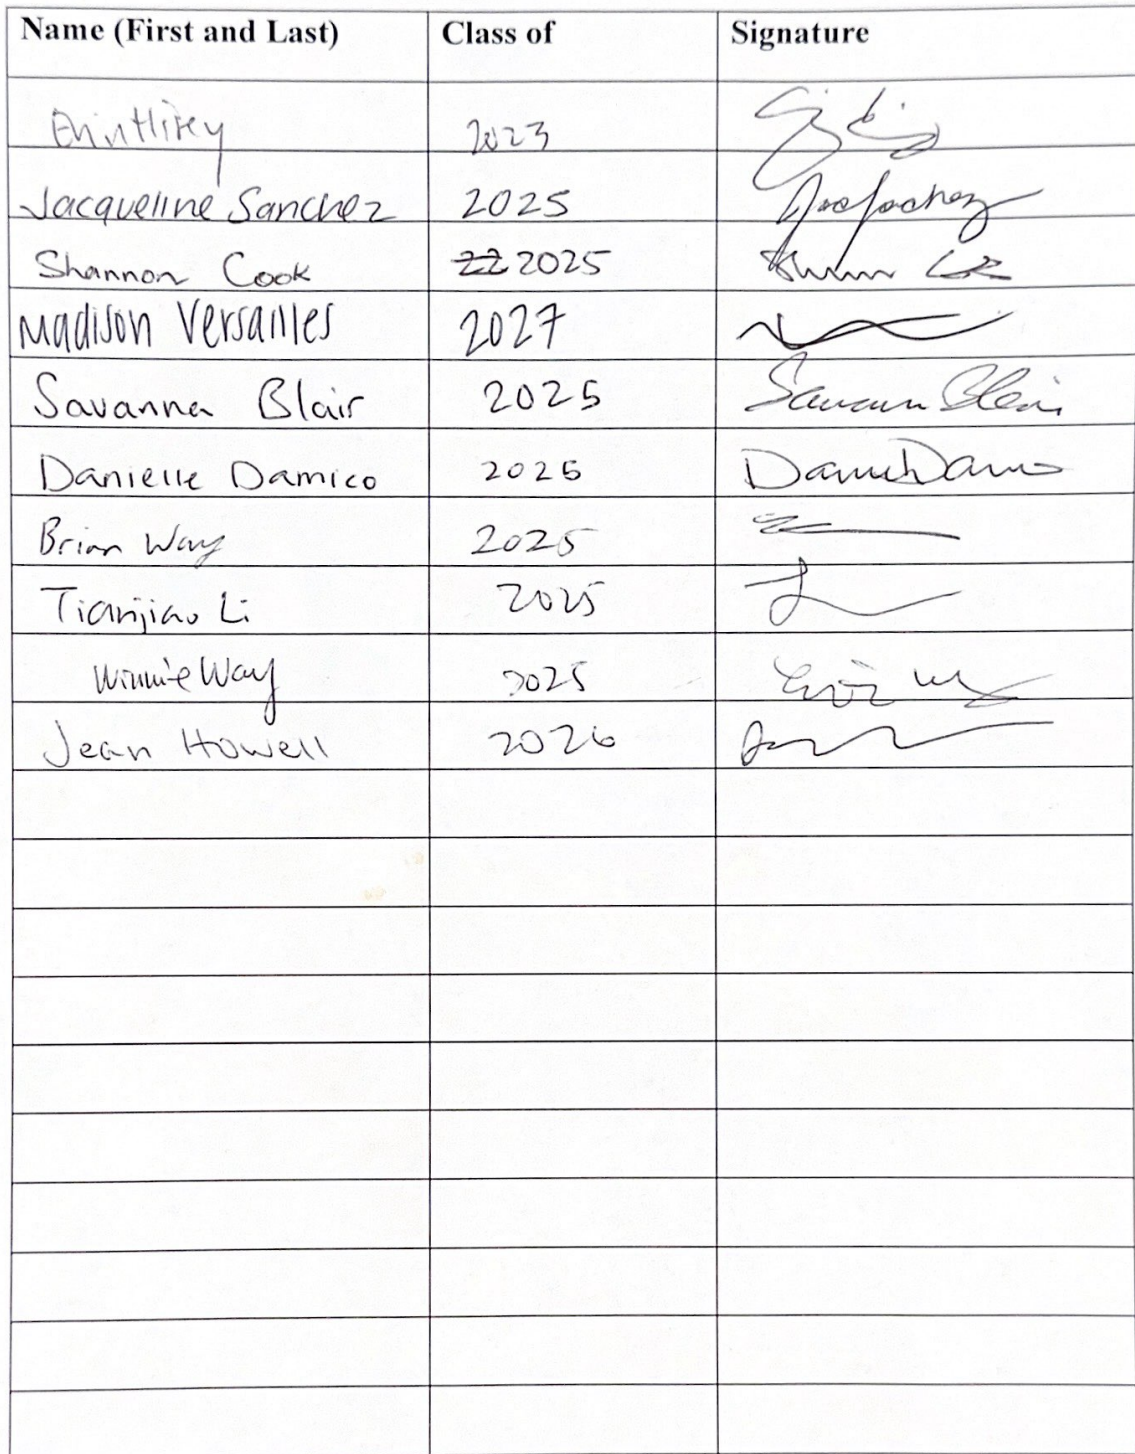 Name (First and Last) Class of Signature
2023
Jacqueline Sanchez 2025
Shannon Cook 22 2025
Madison Versailles 2027
Savanna Blair 2025 Savanna Blair
Danielle Damico 2025
Brian Way 2025
Tianjiao Li 2025
Winnie Way 2025
Jean Howell 2026